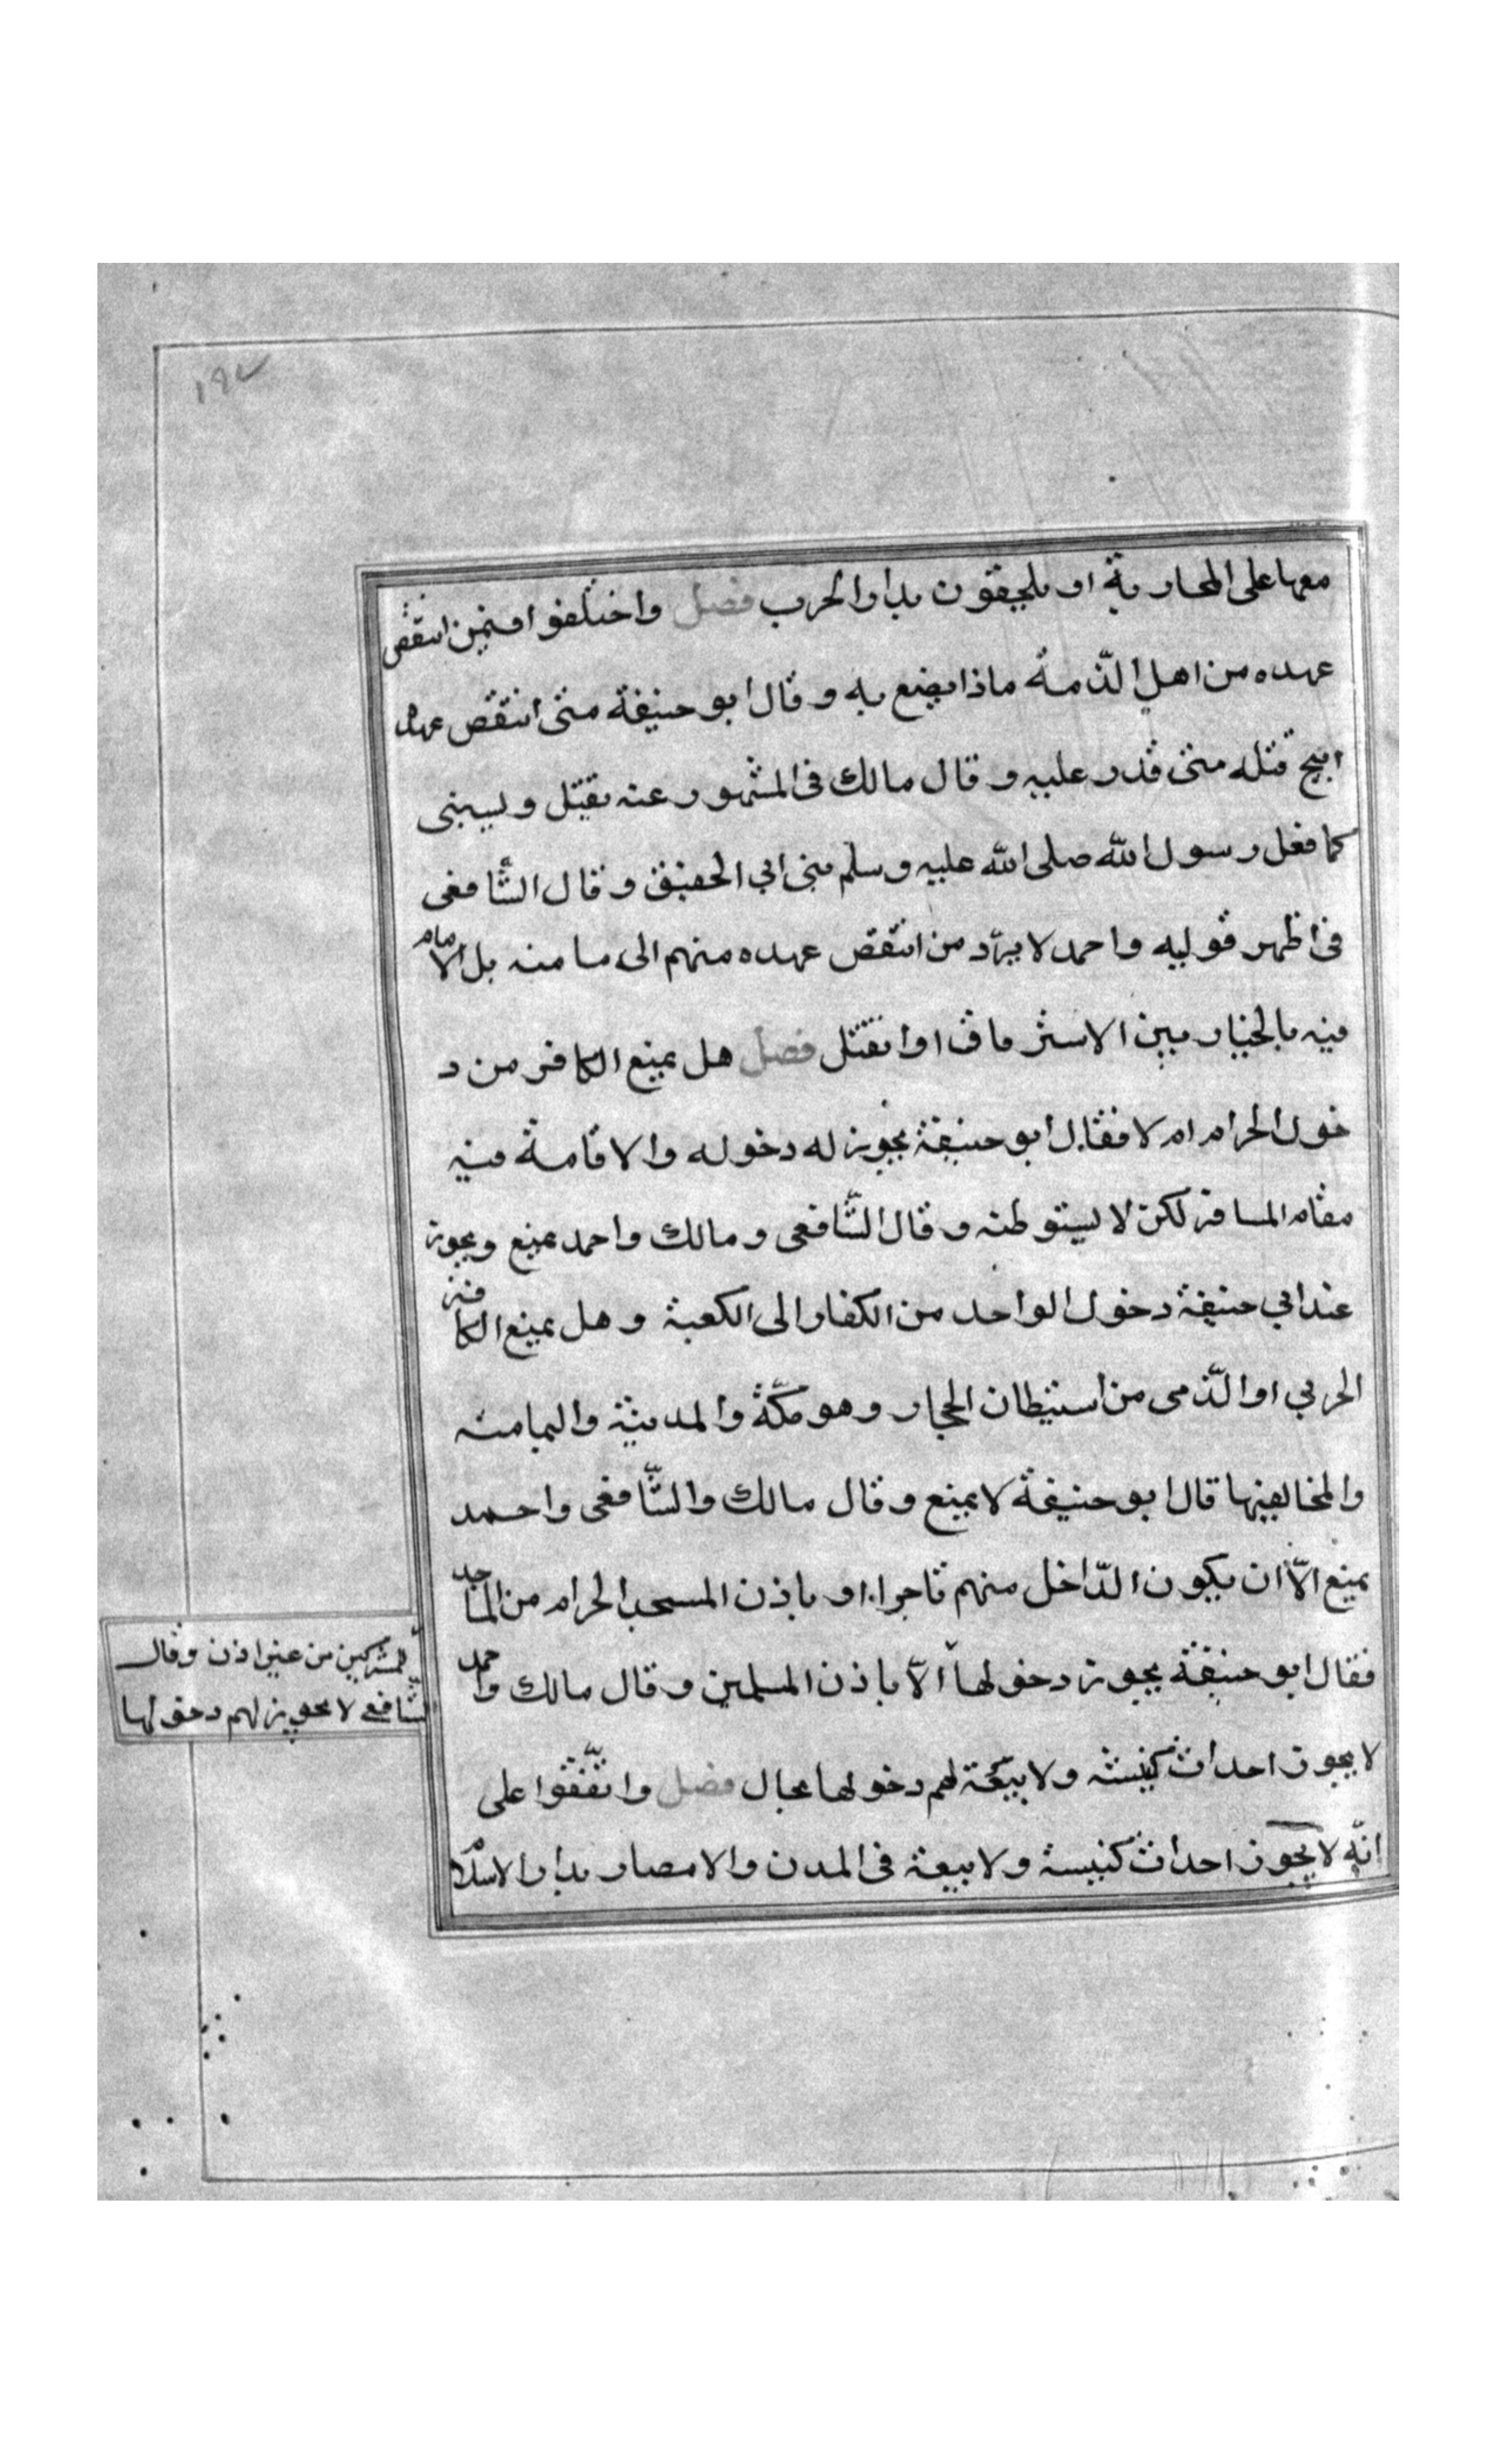 ١٩٧
معها على المحاربة او يلحقون بدار الحرب فصل واختلفوا فيمن انتقض
عهده من اهل الذّمة ماذا يصنع به وقال ابو حنيفة متى انتقض عهده
ابيح قتله متى قدر عليه وقال مالك فى المشهور عنه يقتل ويسبى
كما فعل رسول الله صلى الله عليه وسلم ببنى ابي الحقيق وقال الشّافعى
فى اظهر قوليه واحمد لا يردّ من انتقض عهده منهم الى مامنه بل الامام
فيه بالخيار بين الاسترقاق او القتل فصل هل يمنع الكافر من د
خول الحرام ام لا فقال ابو حنيفة يجوز له دخوله والاقامة فيه
مقام المسافر لكن لا يستوطنه وقال الشّافعى ومالك واحمد يمنع ويجوز
عند ابي حنيفة دخول الواحد من الكفار الى الكعبة وهل يمنع الكافر
الحربي او الذّمى من استيطان الحجاز وهو مكّة والمدينة واليمامة
والمخاليفها قال ابو حنيفة لا يمنع وقال مالك والشّافعى واحمد
يمنع الّا ان يكون الدّاخل منهم تاجرا او باذن المسجد الحرام من المساجد
فقال ابو حنيفة يجوز دخولها الّا باذن المسلمين وقال مالك واحمد
لا يجوز احداث كنيسة ولا بيعة لهم دخولها بحال فصل واتّفقوا على
انّه لا يجوز احداث كنيسة ولا بيعة فى المدن والامصار بدار الاسلام
للمشركين من غير اذن وقال
الشّافعى لا يجوز لهم دخولها